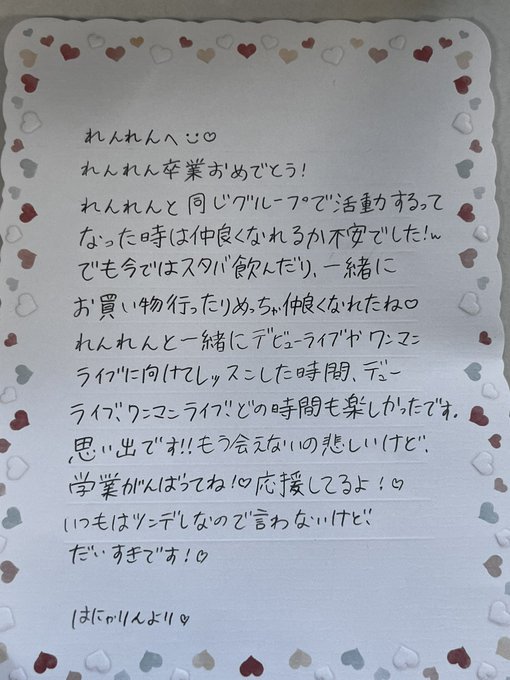 れんれんへ☺♡
れんれん卒業おめでとう!
れんれんと同じグループで活動するって
なった時は仲良くなれるか不安でした!w
でも今ではスタバ飲んだり、一緒に
お買い物行ったりめっちゃ仲良くなれたね♡
れんれんと一緒にデビューライブやワンマン
ライブに向けてレッスンした時間、デュー
ライブ、ワンマンライブ、どの時間も楽しかったです。
思い出です!!もう会えないの悲しいけど、
学業がんばってね!♡応援してるよ!♡
いつもはツンデレなので言わないけど、
だいすきです!♡
はにかりんより♡